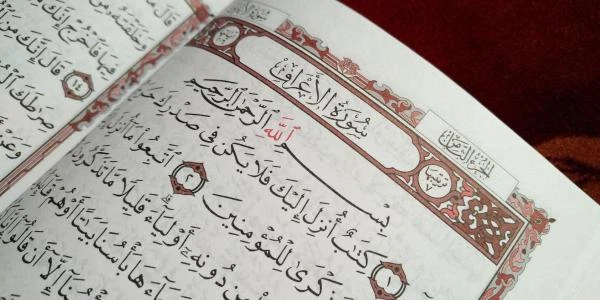 سُورَةُ الأَعۡرَافِ
الجزء الثامن
ترتيبها ٧
بِسۡمِ ٱللَّهِ ٱلرَّحۡمَٰنِ ٱلرَّحِيمِ
١ كِتَٰبٌ أُنزِلَ إِلَيۡكَ فَلَا يَكُن فِي صَدۡرِكَ
ذِكۡرَىٰ لِلۡمُؤۡمِنِينَ ٢ ٱتَّبِعُواْ مَآ أُنزِلَ
مِن دُونِهِۦٓ أَوۡلِيَآءَۗ قَلِيلٗا مَّا تَذَكَّرُونَ
بَأۡسُنَا بَيَٰتًا أَوۡ هُمۡ
إِلَّآ أَن قَالُوٓاْ
قَالَ
وَخَلَقۡتَهُۥ مِن
فِيهَا فَٱخۡرُجۡ إِنَّكَ
١٤ قَالَ إِنَّكَ مِنَ
صِرَٰطَكَ
وَعَنۡ